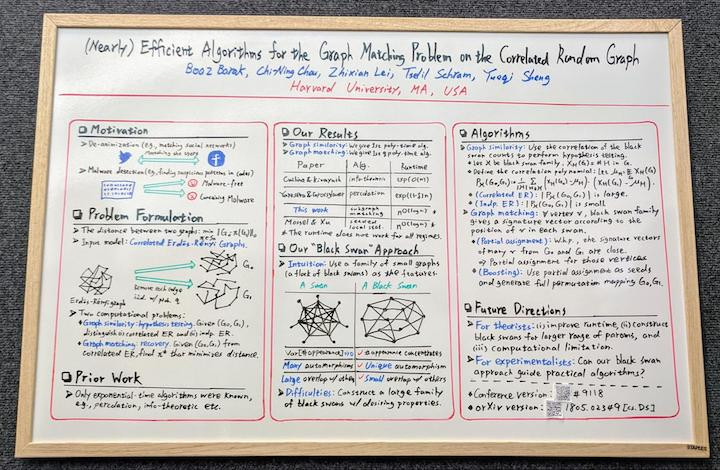 (Nearly) Efficient Algorithms for the Graph Matching Problem on the Correlated Random Graph
Boaz Barak, Chi-Ning Chou, Zhixian Lei, Tselil Schramm, Yueqi Sheng
Harvard University, MA, USA
Motivation
De-animization (e.g., matching social networks)
matching the users
Malware detection (e.g., finding suspicious patterns in codes)
Malware-free
Containing Malware
Problem Formulation
The distance between two graphs: min
Input model: Correlated Erdős-Rényi Graphs.
G₀
Remove each edge
i.i.d. w/ prob.
G₁
Erdős-Rényi graph
Two computational problems:
Graph similarity: hypothesis testing. Given (G₀,G₁),
distinguish correlated ER and indp. ER.
Graph matching: recovery. Given (G₀,G₁) from
correlated ER, find π* that minimizes distance.
Prior Work
Only exponential-time algorithms were known,
e.g., percolation, info-theoretic etc.
Our Results
Graph similarity: We give 1st poly-time alg.
Graph matching: We give 1st poly-time alg.
Paper Alg. Runtime
Cullina & Kiyavash info-theoretic exp(O(n))
Yartseva & Grossglauser percolation
This work subgraph matching
Mossel & Xu seeded local stat.
* The runtime does not work for all regimes.
Our "Black Swan" Approach
Intuition: Use a family of small graphs
(a flock of black swans) as the features.
A Swan A Black Swan
Var[#appearance] #appearance concentrates
Many automorphism Unique automorphism
Large overlap w/ others Small overlap w/ others
Difficulties: Construct a large family
of black swans w/ desiring properties.
Algorithms
Graph similarity: Use the correlation of the black
swan counts to perform hypothesis testing.
Let H be black swan family, X_H(G) = # H in G.
Define the correlation polynomial:
(Correlated ER): is large.
(Indp. ER): is small.
Graph matching: ∀ vertex v, black swan family
gives a signature vector according to the
position of v in each swan.
(Partial assignment): W.h.p., the signature vectors
of many v from G₀ and G₁ are close.
⇒ Partial assignment for those vertices
(Boosting): Use partial assignment as seeds
and generate full permutation matching G₀,G₁.
Future Directions
For theorists: (i) improve runtime, (ii) construct
black swans for larger range of params, and
(iii) computational limitation.
For experimentalists: Can our black swan
approach guide practical algorithms?
Conference version: #9118
arXiv version: 1805.02349 [cs.DS]
STAPLES